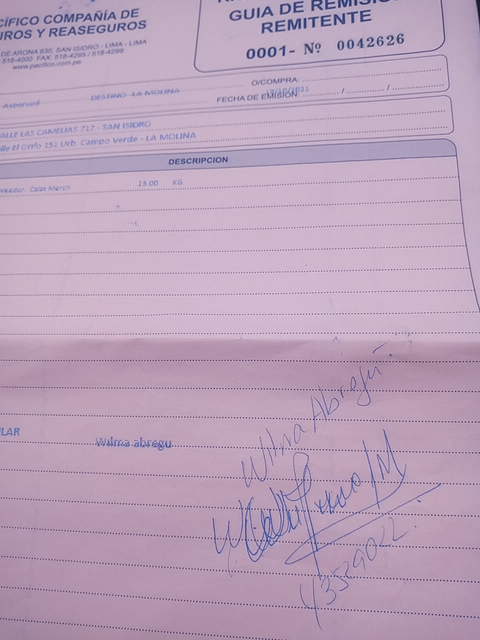 CÍFICO COMPAÑÍA DE
UROS Y REASEGUROS
DE ARONA 830, SAN ISIDRO - LIMA - LIMA
518-4000 FAX: 518-4295 / 518-4299
www.pacifico.com.pe
GUIA DE REMISIÓN
REMITENTE
0001- Nº 0042626
DESTINO -LA MOLINA
O/COMPRA:
FECHA DE EMISION:
CALLE LAS CAMELIAS 717 - SAN ISIDRO
151 Urb. Campo Verde - LA MOLINA
DESCRIPCION
15.00 KG
LAR
Wilma abregu
Wilma Abregú
43529022